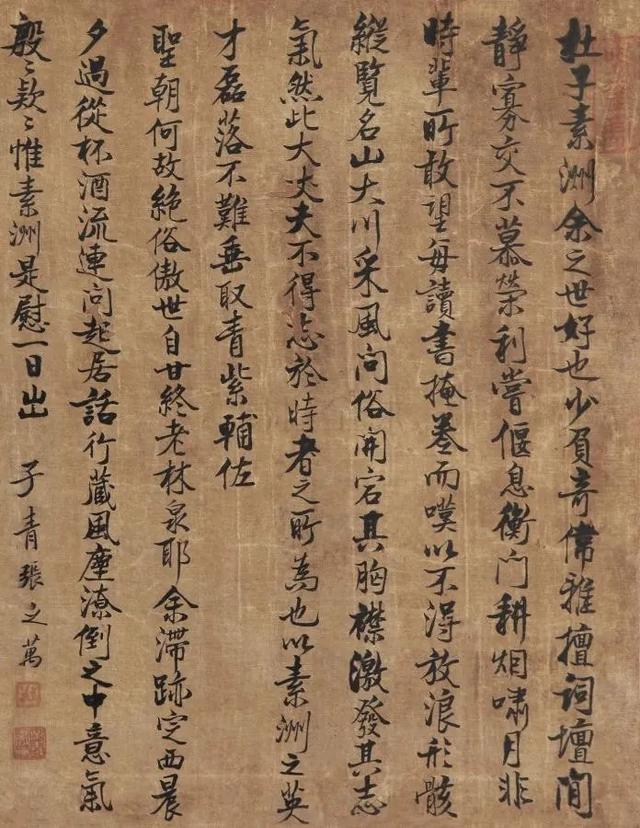 杜子素洲余之世好也少負奇儁雅擅詞壇閒
靜寡交不慕榮利嘗偃息衡門耕烟嘯月非
時輩所敢望每讀書掩卷而嘆以不得放浪形骸
縱覽名山大川采風問俗開宕其胸襟激發其志
氣然此大丈夫不得志於時者之所為也以素洲之英
才磊落不難垂取青紫輔佐
聖朝何故絕俗傲世自甘終老林泉耶余滯跡定西晨
夕過從杯酒流連問起居話行藏風塵潦倒之中意氣
殷〻款〻惟素洲是慰一日出
子青張之萬